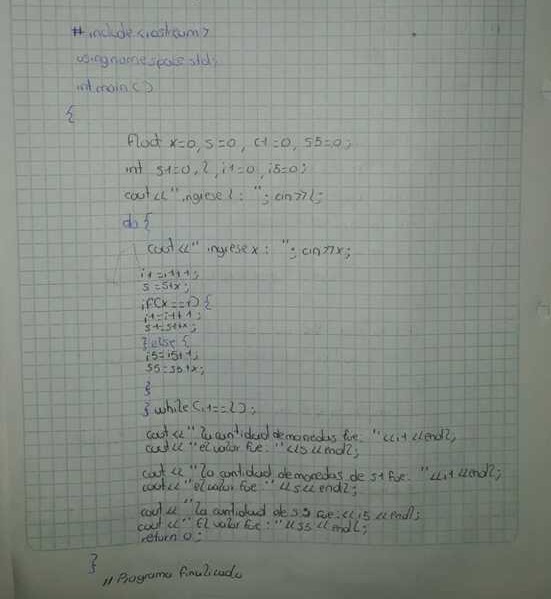 #include <iostream>
using namespace std;
int main()
{
float x=0, s=0, c1=0, s5=0;
int s1=0, l, i1=0, i5=0;
cout<<"ingrese l: "; cin>>l;
do {
cout<<"ingrese x: "; cin>>x;
i1=i1+1;
s=s+x;
if(x==1) {
i1=i1+1;
s1=s1+x;
} else {
i5=i5+1;
s5=s5+x;
}
} while(i1==l);
cout<<"la cantidad de monedas fue: "<<i1<<endl;
cout<<"el valor fue: "<<s<<endl;
cout<<"la cantidad de monedas de s1 fue: "<<i1<<endl;
cout<<"el valor fue: "<<s<<endl;
cout<<"la cantidad de s5 fue:<<i5<<endl;
cout<<"El valor fue: "<<s5<<endl;
return 0;
}
//Programa finalizado